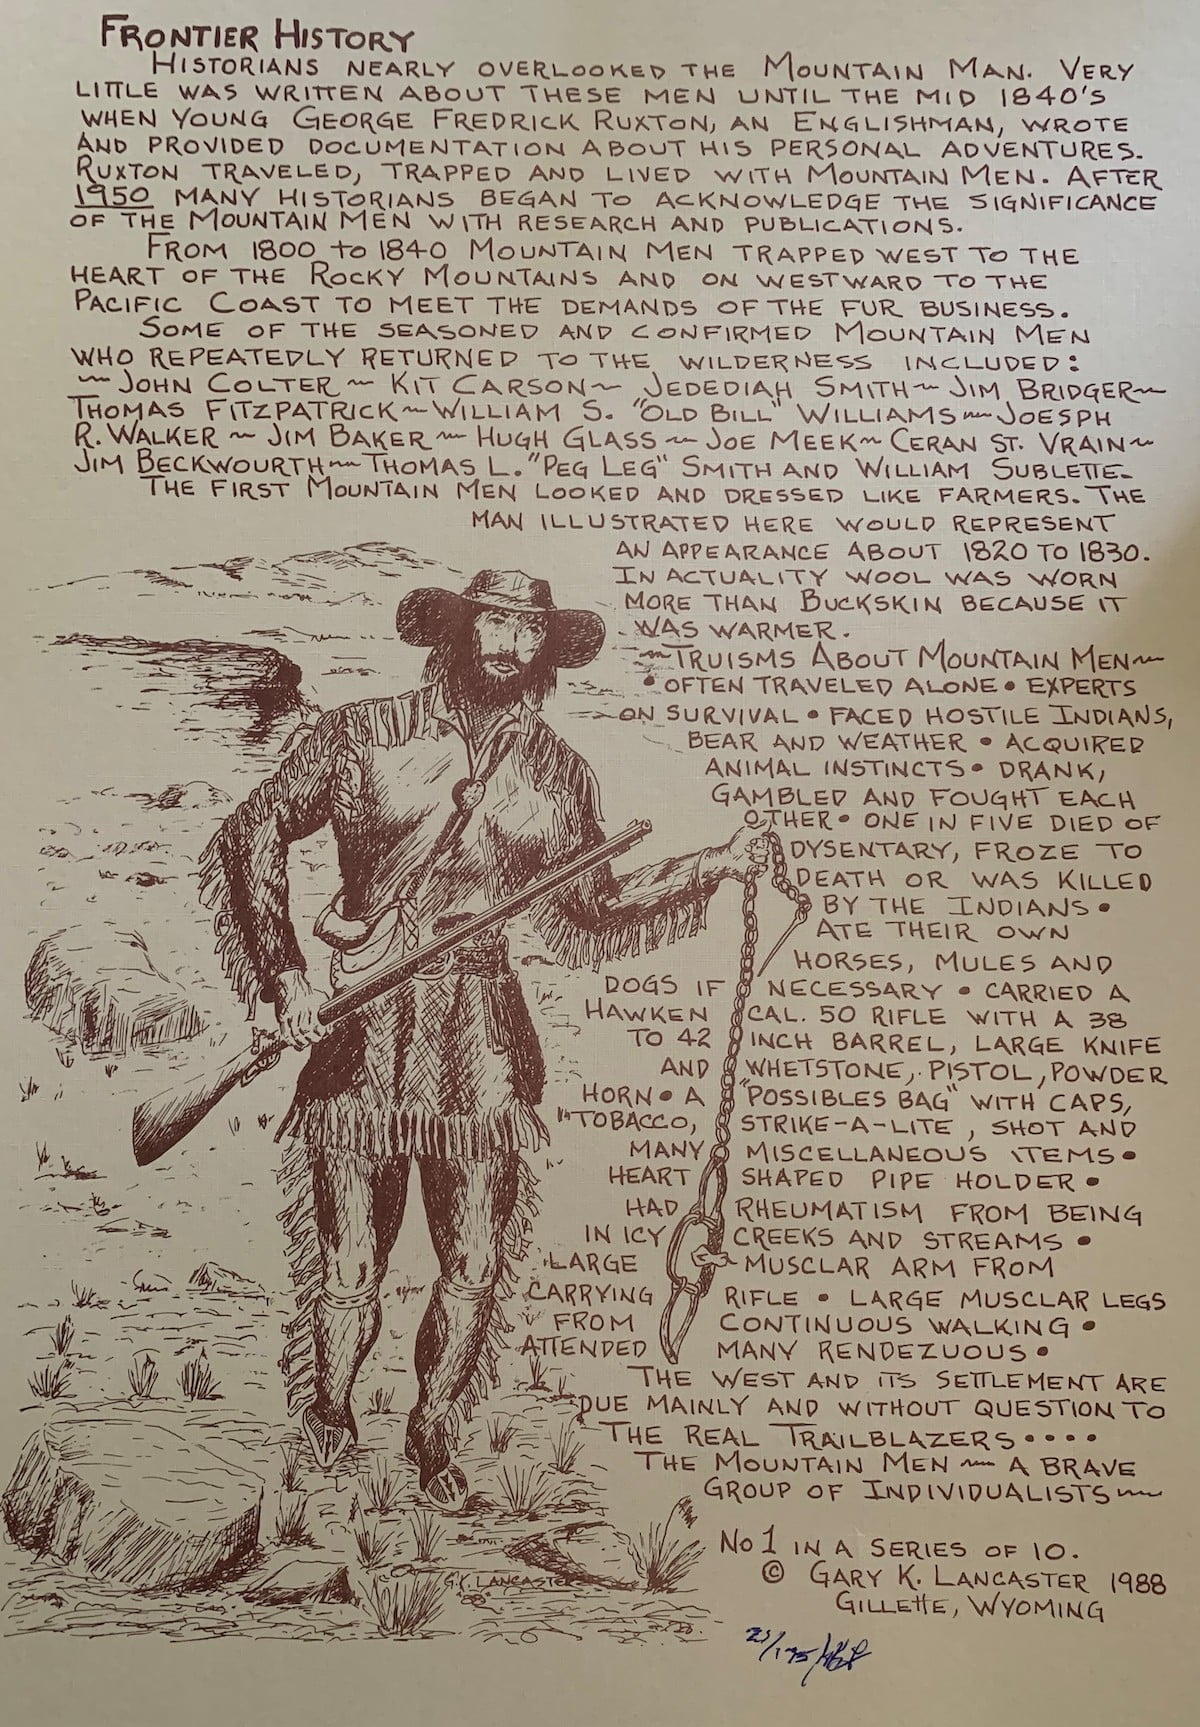 FRONTIER HISTORY
HISTORIANS NEARLY OVERLOOKED THE MOUNTAIN MAN. VERY
LITTLE WAS WRITTEN ABOUT THESE MEN UNTIL THE MID 1840'S
WHEN YOUNG GEORGE FREDRICK RUXTON, AN ENGLISHMAN, WROTE
AND PROVIDED DOCUMENTATION ABOUT HIS PERSONAL ADVENTURES.
RUXTON TRAVELED, TRAPPED AND LIVED WITH MOUNTAIN MEN. AFTER
1950 MANY HISTORIANS BEGAN TO ACKNOWLEDGE THE SIGNIFICANCE
OF THE MOUNTAIN MEN WITH RESEARCH AND PUBLICATIONS.
FROM 1800 to 1840 MOUNTAIN MEN TRAPPED WEST TO THE
HEART OF THE ROCKY MOUNTAINS AND ON WESTWARD TO THE
PACIFIC COAST TO MEET THE DEMANDS OF THE FUR BUSINESS.
SOME OF THE SEASONED AND CONFIRMED MOUNTAIN MEN
WHO REPEATEDLY RETURNED TO THE WILDERNESS INCLUDED:
~ JOHN COLTER ~ KIT CARSON ~ JEDEDIAH SMITH ~ JIM BRIDGER ~
THOMAS FITZPATRICK ~ WILLIAM S. "OLD BILL" WILLIAMS ~ JOESPH
R. WALKER ~ JIM BAKER ~ HUGH GLASS ~ JOE MEEK ~ CERAN ST. VRAIN ~
JIM BECKWOURTH ~ THOMAS L. "PEG LEG" SMITH AND WILLIAM SUBLETTE.
THE FIRST MOUNTAIN MEN LOOKED AND DRESSED LIKE FARMERS. THE
MAN ILLUSTRATED HERE WOULD REPRESENT
AN APPEARANCE ABOUT 1820 TO 1830.
IN ACTUALITY WOOL WAS WORN
MORE THAN BUCKSKIN BECAUSE IT
WAS WARMER.
~ TRUISMS ABOUT MOUNTAIN MEN ~
• OFTEN TRAVELED ALONE • EXPERTS
ON SURVIVAL • FACED HOSTILE INDIANS,
BEAR AND WEATHER • ACQUIRED
ANIMAL INSTINCTS • DRANK,
GAMBLED AND FOUGHT EACH
OTHER • ONE IN FIVE DIED OF
DYSENTARY, FROZE TO
DEATH OR WAS KILLED
BY THE INDIANS •
ATE THEIR OWN
HORSES, MULES AND
DOGS IF NECESSARY • CARRIED A
HAWKEN CAL. 50 RIFLE WITH A 38
TO 42 INCH BARREL, LARGE KNIFE
AND WHETSTONE, PISTOL, POWDER
HORN • A "POSSIBLES BAG" WITH CAPS,
TOBACCO, STRIKE-A-LITE, SHOT AND
MANY MISCELLANEOUS ITEMS •
HEART SHAPED PIPE HOLDER •
HAD RHEUMATISM FROM BEING
IN ICY CREEKS AND STREAMS •
LARGE MUSCLAR ARM FROM
CARRYING RIFLE • LARGE MUSCLAR LEGS
FROM CONTINUOUS WALKING •
ATTENDED MANY RENDEZUOUS •
THE WEST AND ITS SETTLEMENT ARE
DUE MAINLY AND WITHOUT QUESTION TO
THE REAL TRAILBLAZERS • • • •
THE MOUNTAIN MEN ~ A BRAVE
GROUP OF INDIVIDUALISTS ~
No 1 IN A SERIES OF 10.
© GARY K. LANCASTER 1988
GILLETTE, WYOMING
G.K. LANCASTER